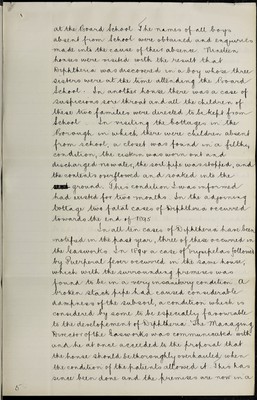 at the Board School. The names of all boys
absent from School were obtained and enquiries
made into the cause of their absence. Nineteen
houses were visited with the result that
Diphtheria was discovered in a boy whose three
sisters were at the time attending the Board
School. In another house there was a case of
suspicious sore throat and all the children of
these two families were directed to be kept from
School. In visiting the cottages in the
Borough in which there were children absent
from school, a closet was found in a filthy
condition, the cistern was worn out and
discharged no water, the soil pipe was stopped, and
the contents overflowed and soaked into the
ground. This condition I was informed
had existed for two months. In the adjoining
cottage two fatal cases of Diphtheria occurred
towards the end of
In all ten cases of Diphtheria have been
notified in the past year, three of these occurred in
the Gasworks. In 1890 a case of Erysipelas followed
by Puerperal fever occurred in the same house,
which with the surrounding premises was
found to be in a very insanitary condition. A
broken stack pipe had caused considerable
dampness of the subsoil, a condition which is
considered by some to be especially favourable
to the development of Diphtheria. The Managing
Director of the Gasworks was communicated with
and he at once acceded to the proposal that
the house should be thoroughly overhauled when
the condition of the patients allowed it. This has
since been done and the premises are now in a